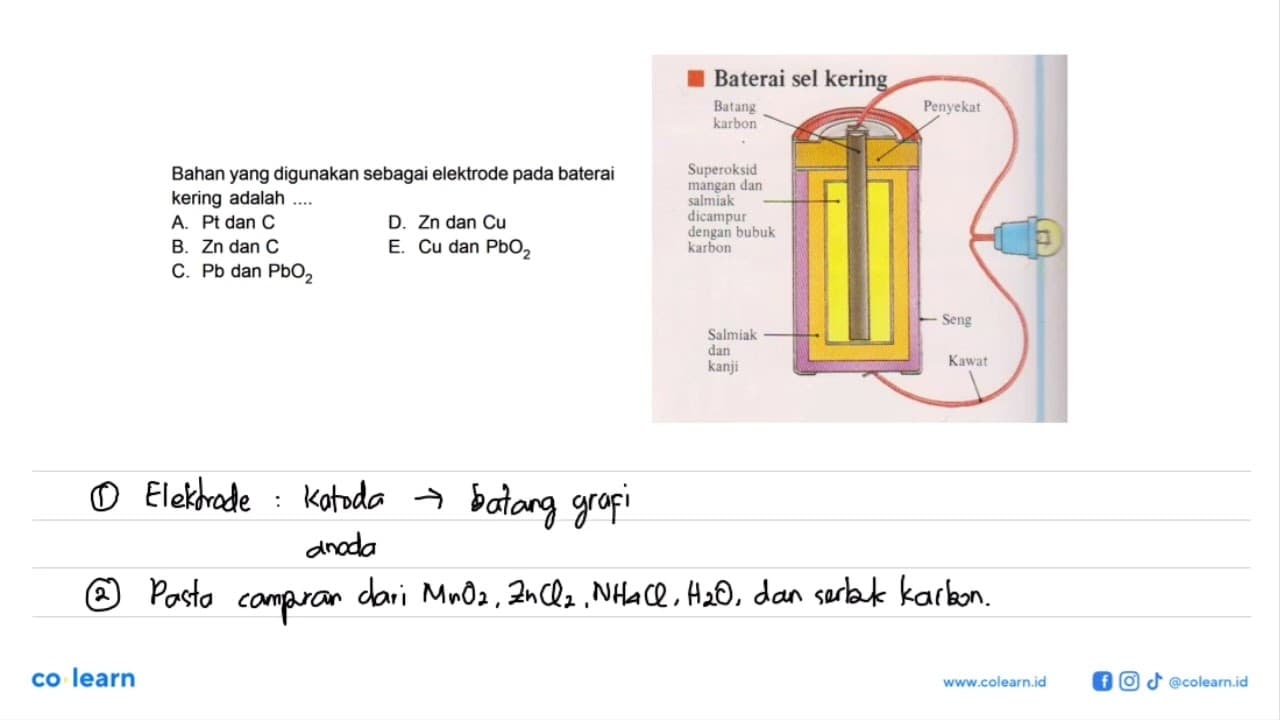 Bahan yang digunakan sebagai elektrode pada baterai
kering adalah ....
A. Pt dan C
B. Zn dan C
C. Pb dan PbO₂
D. Zn dan Cu
E. Cu dan PbO₂
Baterai sel kering
Batang
karbon
Penyekat
Superoksid
mangan dan
salmiak
dicampur
dengan bubuk
karbon
Seng
Salmiak
dan
kanji
Kawat
① Elektrode : Katoda → batang grafi
anoda
② Pasta campuran dari MnO₂, ZnCl₂, NH₄Cl, H₂O, dan serbuk karbon.
co learn
www.colearn.id
@colearn.id